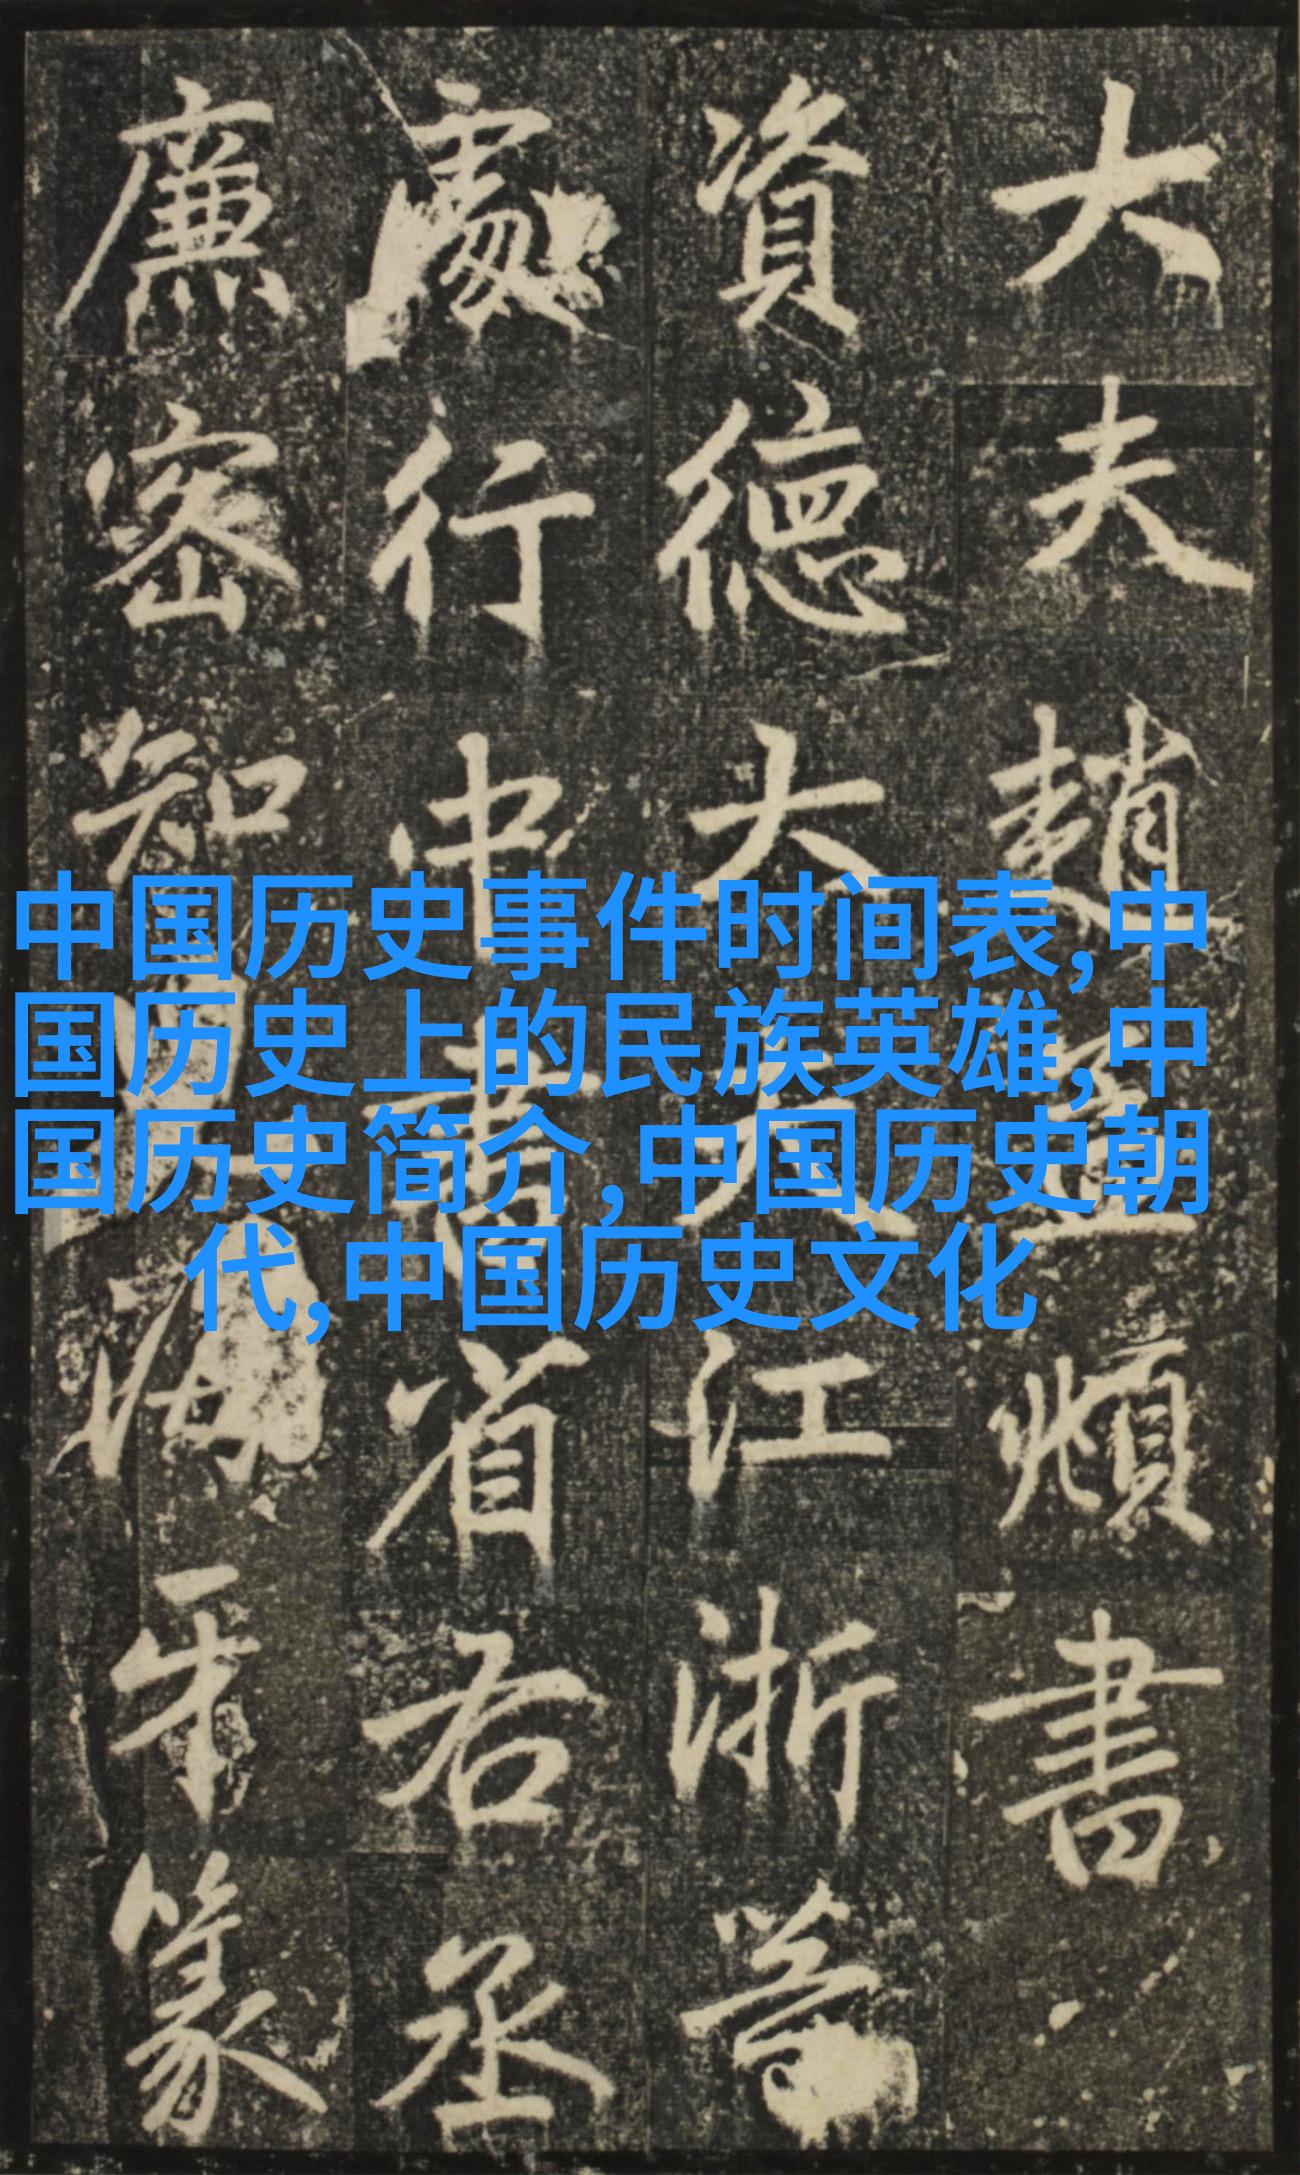 大夫趙孟頫書
資德大夫江浙等
處行中書省右丞
廉密知海牙篆
中国历史事件时间表,中
国历史上的民族英雄,中
国历史简介,中国历史朝
代,中国历史文化